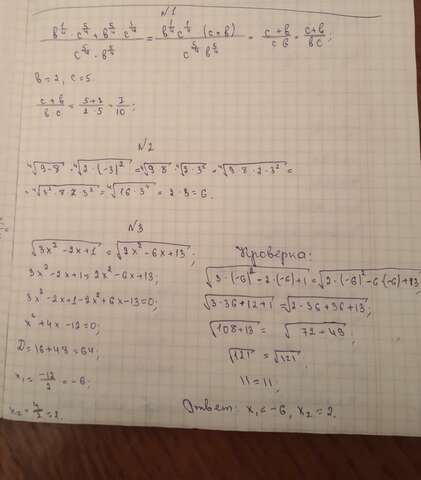 N1
(b^{1/4} · c^{5/4} + b^{5/4} · c^{1/4}) / (c^{5/4} · b^{5/4}) = b^{1/4} c^{1/4} (c + b) / (c^{5/4} b^{5/4}) = (c + b) / (c b) = (c + b) / (b c);
b = 2, c = 5.
(c + b) / (b · c) = (5 + 2) / (2 · 5) = 7/10;
N2
⁴√(9·8) · ⁴√(2·(-3)²) = ⁴√(9·8) · ⁴√(2·3²) = ⁴√(9·8·2·3²) =
= ⁴√(3²·8·2·3²) = ⁴√(16·3⁴) = 2·3 = 6.
N3
√(3x² - 2x + 1) = √(2x² - 6x + 13);
3x² - 2x + 1 = 2x² - 6x + 13;
3x² - 2x + 1 - 2x² + 6x - 13 = 0;
x² + 4x - 12 = 0;
D = 16 + 48 = 64;
x₁ = -12/2 = -6;
x₂ = 4/2 = 2.
Проверка:
√(3·(-6)² - 2·(-6) + 1) = √(2·(-6)² - 6·(-6) + 13);
√(3·36 + 12 + 1) = √(2·36 + 36 + 13);
√(108 + 13) = √(72 + 49);
√121 = √121;
11 = 11;
Ответ: x₁ = -6, x₂ = 2.